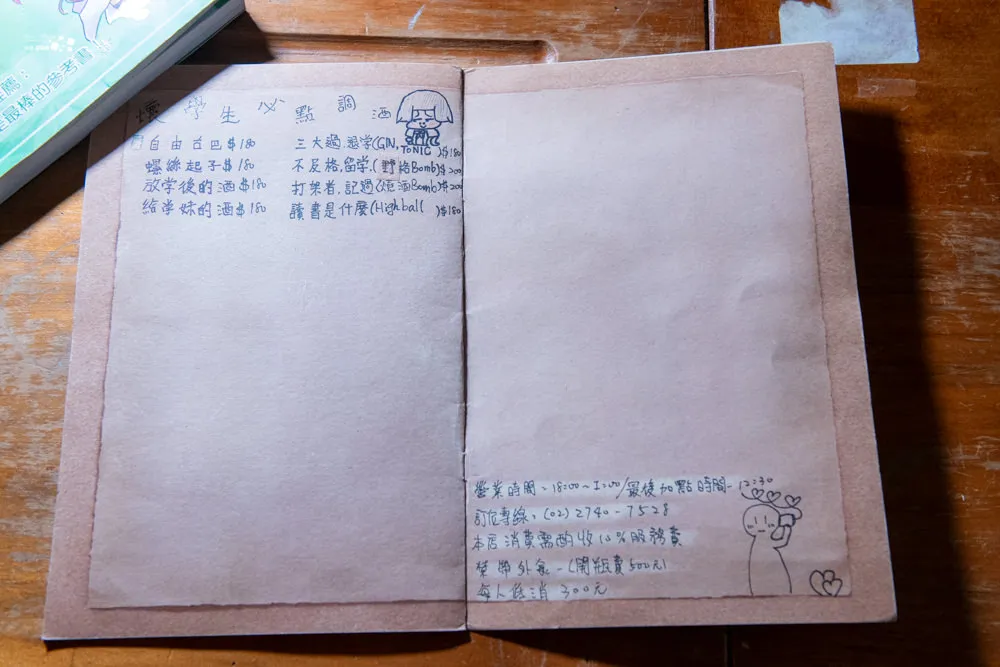 最棒的參考書
壞學生必點調酒
自由古巴$180
螺絲起子$180
放學後的酒$180
給學妹的酒$180
三大過,退學(GIN,TONIC)$180
不及格,留學(野格Bomb)$200
打架者,記過(Bomb)$200
讀書是什麼(Highball)$180
營業時間-18:00~1:00/最後加點時間-12:30
訂位專線:(02)2740-7528
本店消費需酌收10%服務費
禁帶外食-(開瓶費500元)
每人低消300元